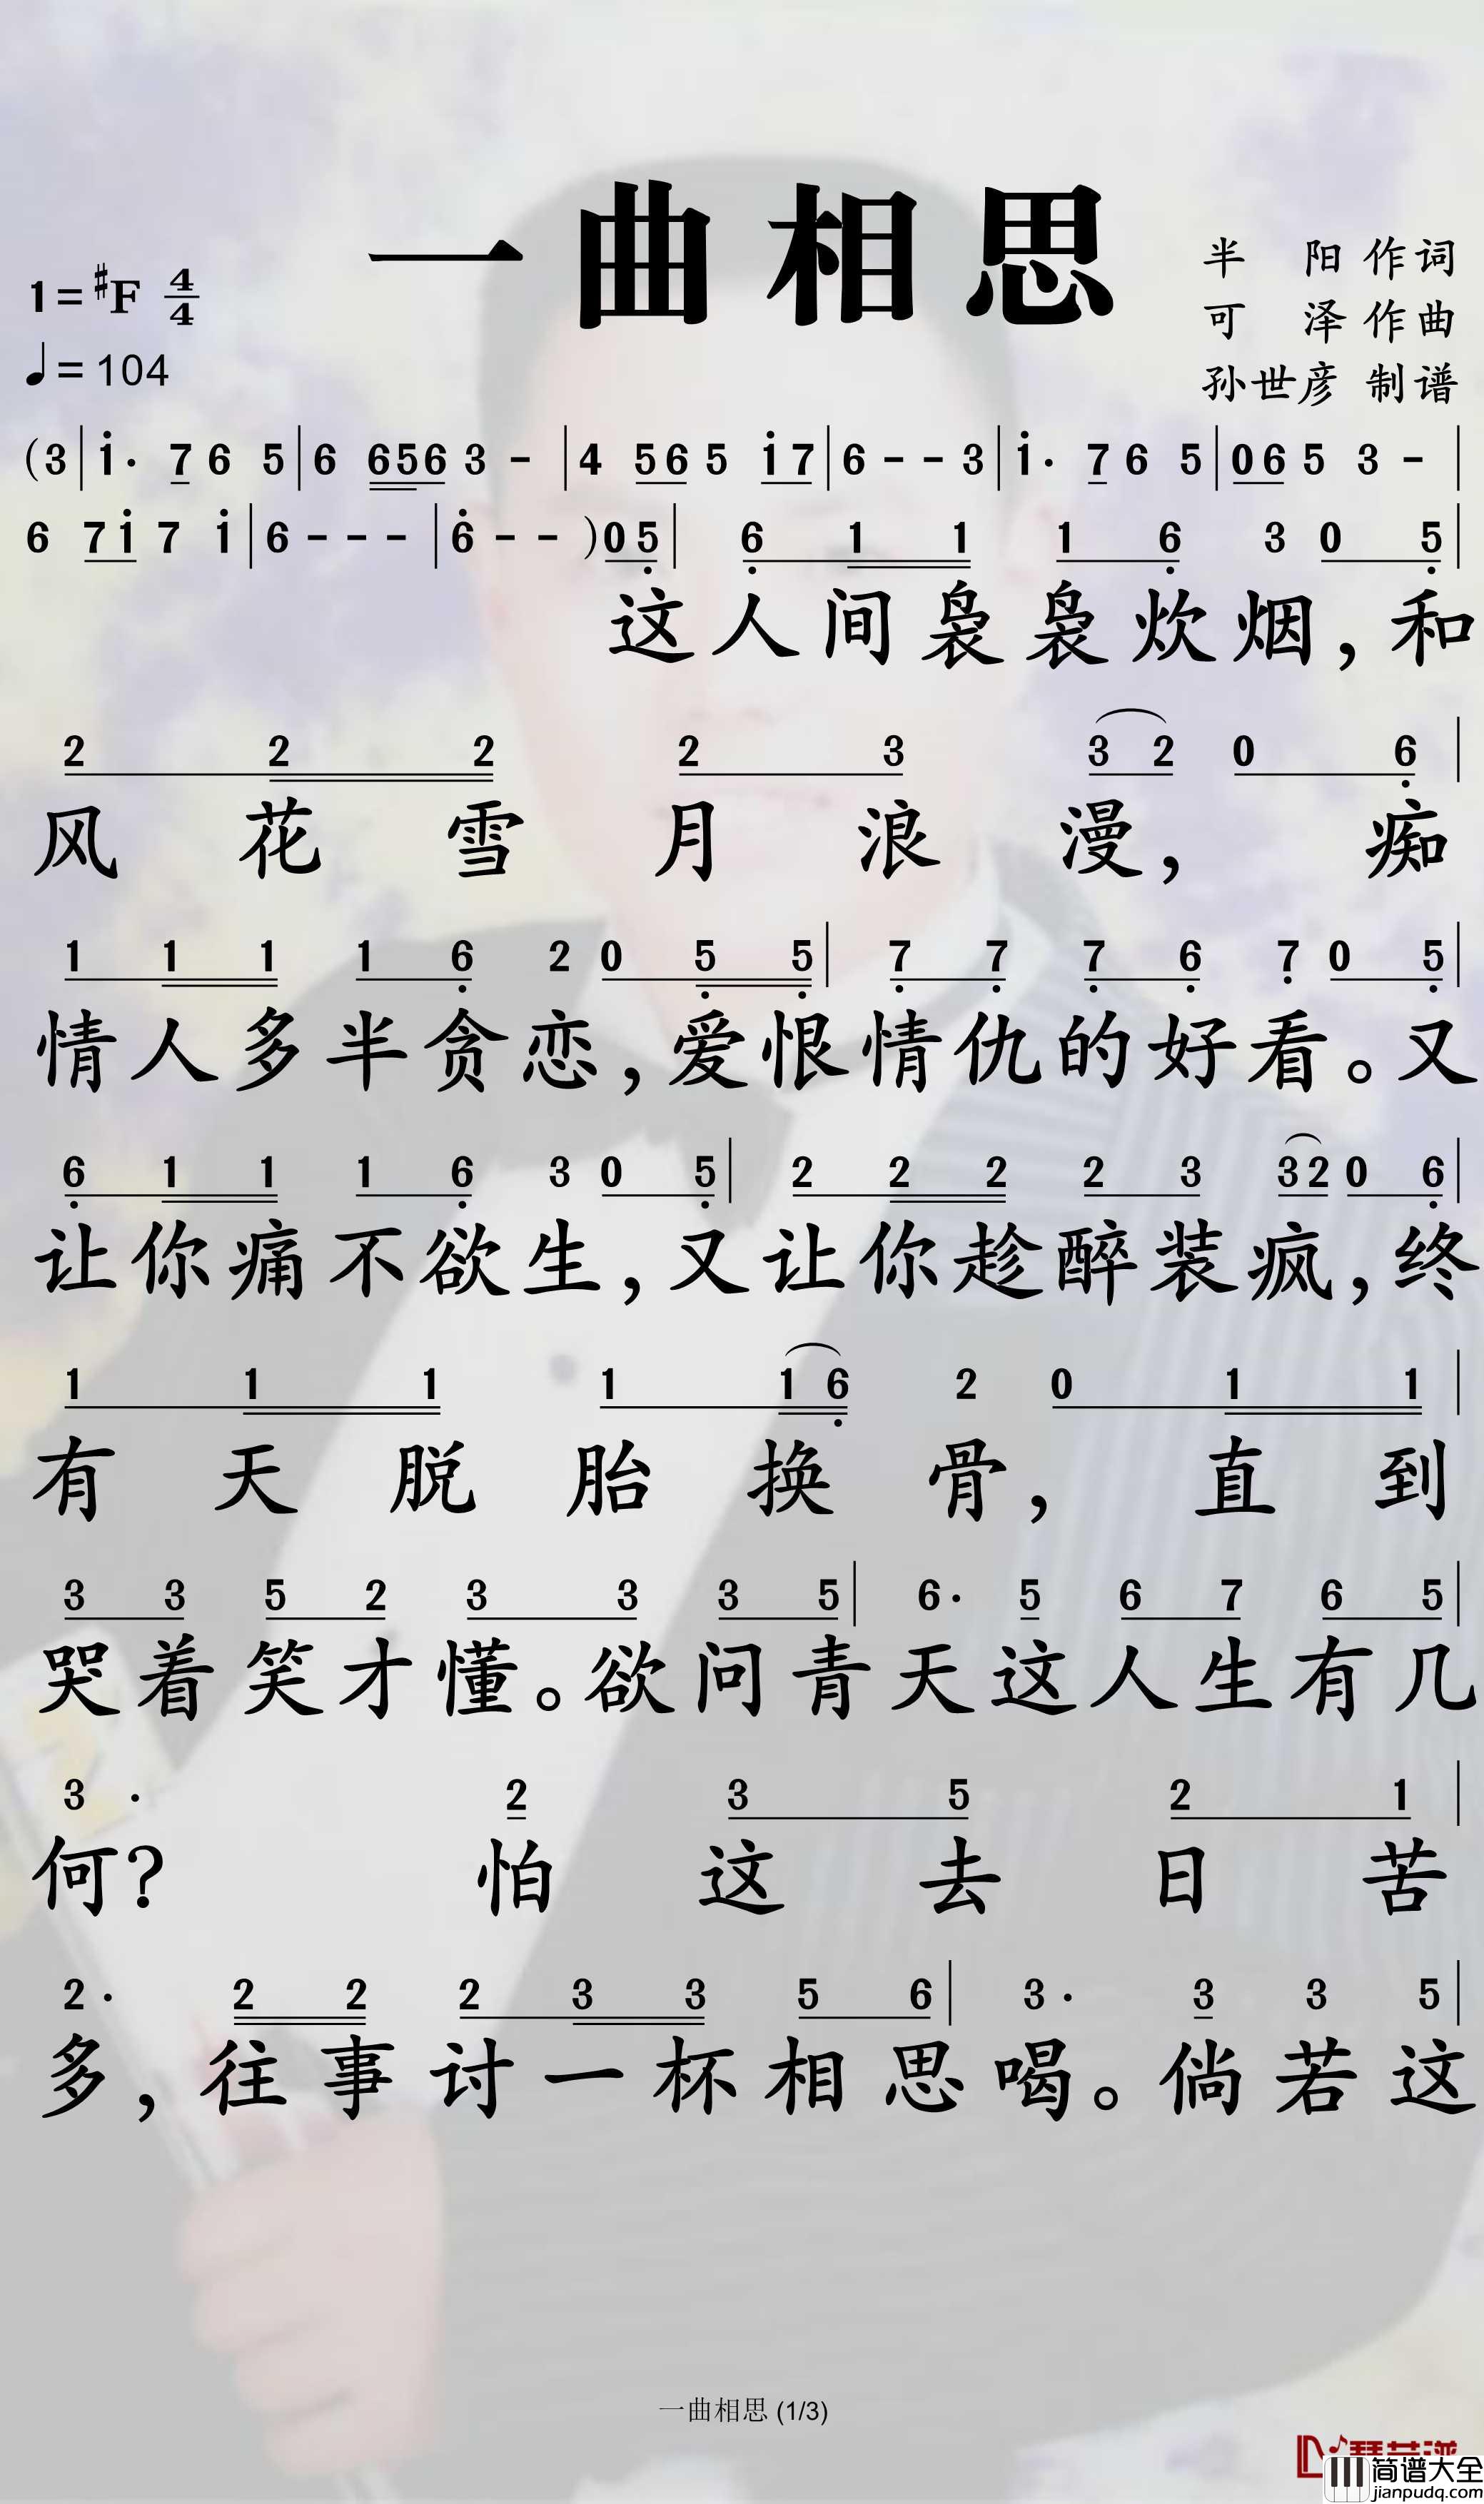 一曲相思
半 阳 作词
1=#F 4/4
可 泽 作曲
♩=104
孙世彦 制谱
(3|i· 7 6 5|6 656 3 -|4 56 5 i7|6 - - 3|i· 7 6 5|06 5 3 -|
6 7i 7 i|6 - - -|6̇ - - )05̣|6̣ 1 1 1 6̣ 3 0 5̣|
这人间袅袅炊烟，和
2 2 2 2 3 3 2 0 6̣|
风花雪月浪漫，痴
1 1 1 1 6̣ 2 0 5̣ 5̣|7̣ 7̣ 7̣ 6̣ 7̣ 0 5̣|
情人多半贪恋，爱恨情仇的好看。又
6̣ 1 1 1 6̣ 3 0 5̣|2 2 2 2 3 32 0 6̣|
让你痛不欲生，又让你趁醉装疯，终
1 1 1 1 1 6̣ 2 0 1 1|
有天脱胎换骨，直到
3 3 5 2 3 3 3 5|6· 5 6 7 6 5|
哭着笑才懂。欲问青天这人生有几
3 · 2 3 5 2 1|
何？怕这去日苦
2· 2 2 2 3 3 5 6|3· 3 3 5|
多，往事讨一杯相思喝。倘若这
一曲相思 (1/3)
简谱大全
jianpudq.com